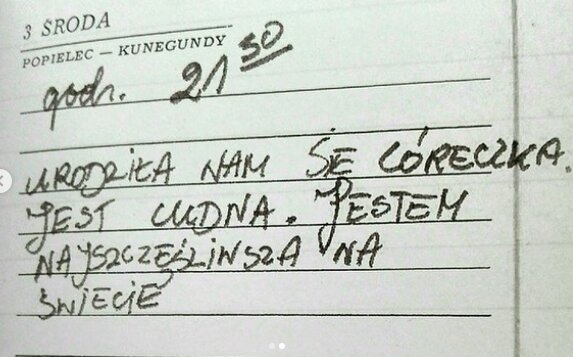 3 ŚRODA
POPIELEC — KUNEGUNDY
godz. 21 50
URODZIŁA NAM SIĘ CÓRECZKA.
JEST CUDNA. JESTEM
NAJSZCZĘŚLIWSZA NA
ŚWIECIE